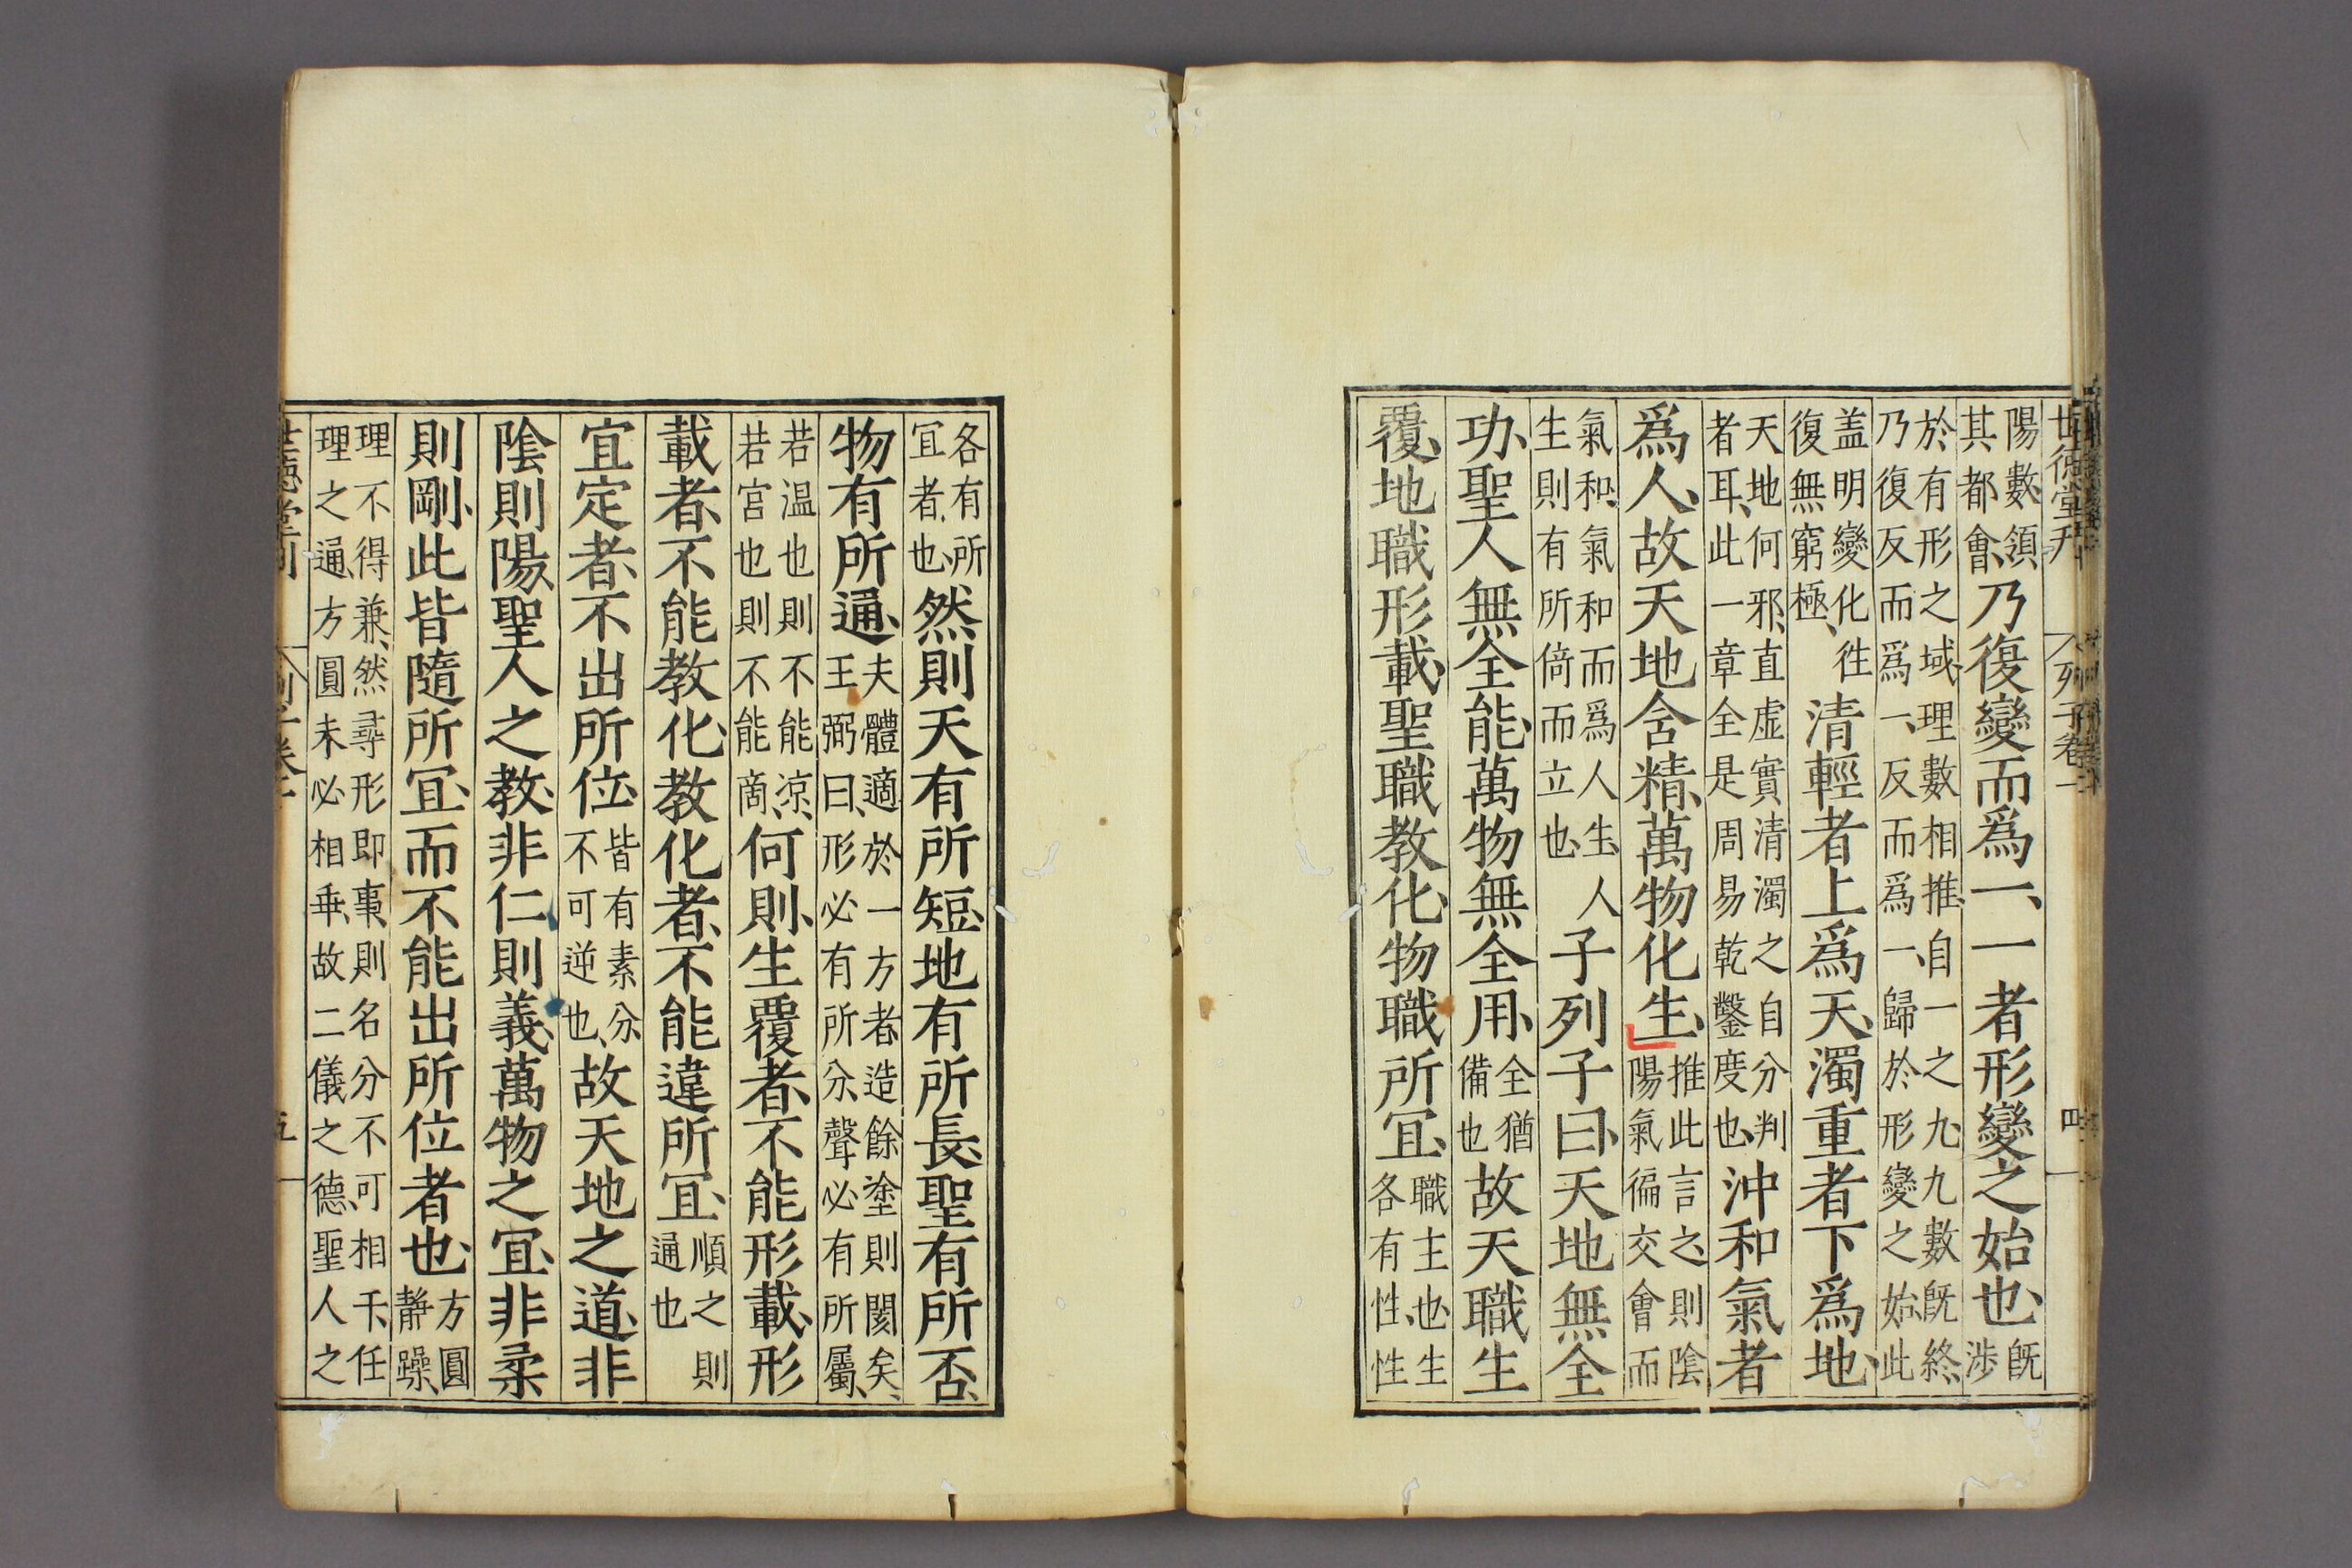 世德堂刊 列子卷一 四
陽數、領其都會、乃復變而爲一、一者形變之始也、旣涉
於有形之域、理數相推、自一之九、九數旣終、乃復反而爲一、反而爲一、歸於形變之始、此
盖明變化徃復無窮極、清輕者上爲天、濁重者下爲地、
天地何邪、直虛實清濁之自分判者耳、此一章全是周易乾鑿度也、沖和氣者
爲人、故天地含精、萬物化生、推此言之、則陰陽氣徧交會而
氣和、氣和而爲人生、人生則有所倚而立也、子列子曰、天地無全
功、聖人無全能、萬物無全用、全猶備也故天職生
覆、地職形載、聖職教化、物職所冝、職主也、生各有性、性
各有所冝者也、然則天有所短、地有所長、聖有所否、
物有所通、夫體適於一方者、造餘塗則閡矣、王弼曰、形必有所分、聲必有所屬、
若温也則不能凉、若宮也則不能商、何則、生覆者、不能形載、形
載者、不能教化、教化者、不能違所冝、順之則通也
宜定者、不出所位、皆有素分、不可逆也、故天地之道、非
陰則陽、聖人之教、非仁則義、萬物之冝、非柔
則剛、此皆隨所冝、而不能出所位者也、方圓静躁、
理不得兼、然尋形即事、則名分不可相干、任理之通、方圓未必相乖、故二儀之德、聖人之
世德堂刊 列子卷一 五